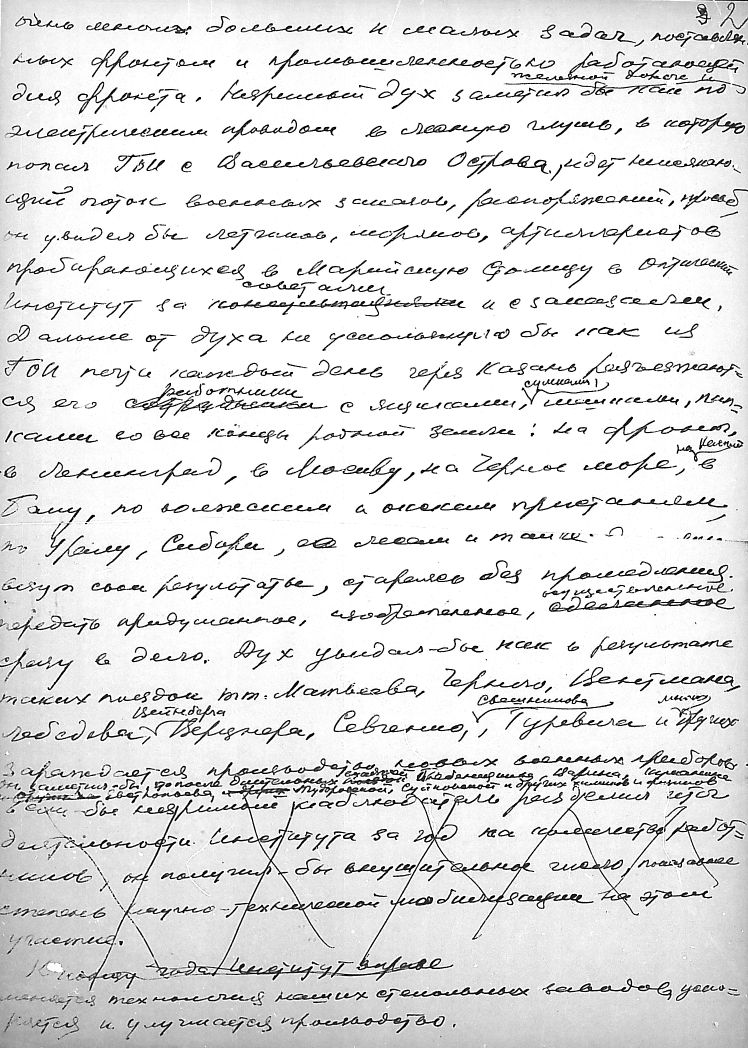 2
очень многих больших и малых задач, поставлен-
ных фронтом и промышленностью работающей
для фронта. Незримый дух заметил бы как по железной дороге и
электрическим проводам в лесную глушь, в которую
попал ГОИ с Васильевского Острова, идет неиссякаю-
щий поток военных заказов, распоряжений, просьб,
он увидел бы летчиков, моряков, артиллеристов
пробирающихся в Марийскую столицу в Оптический
Институт за советами и с заказами.
Дальше от духа не ускользнуло бы как из
ГОИ почти каждый день через Казань разъезжают-
ся его работники с ящиками, сумками, пап-
ками во все концы родной земли: на фронты,
в Ленинград, в Москву, на Черное море, на в
Баку, по волжским и окским пристаням,
по Уралу, Сибири,
везут свои результаты, стараясь без промедления
передать придуманное, изобретенное, осуществленное
сразу в дело. Дух увидал-бы как в результате
таких поездок тт. Матвеева, Чернего, Вентмана,
Лебедева, Цейнберга, Верцнера, Севченко, Свешникова, Гуревича и многих других
зарождается производство новых военных приборов.
заметил-бы, и других химиков и физиков
бы незримый наблюдатель разделил итог
деятельности Института за год на количество работ-
ников, он получил-бы внушительное число, показавшее
степень научно-технической мобилизации на этом
участке.
К концу года Институт
меняется технология наших стекольных заводов, уско-
ряется и улучшается производство.